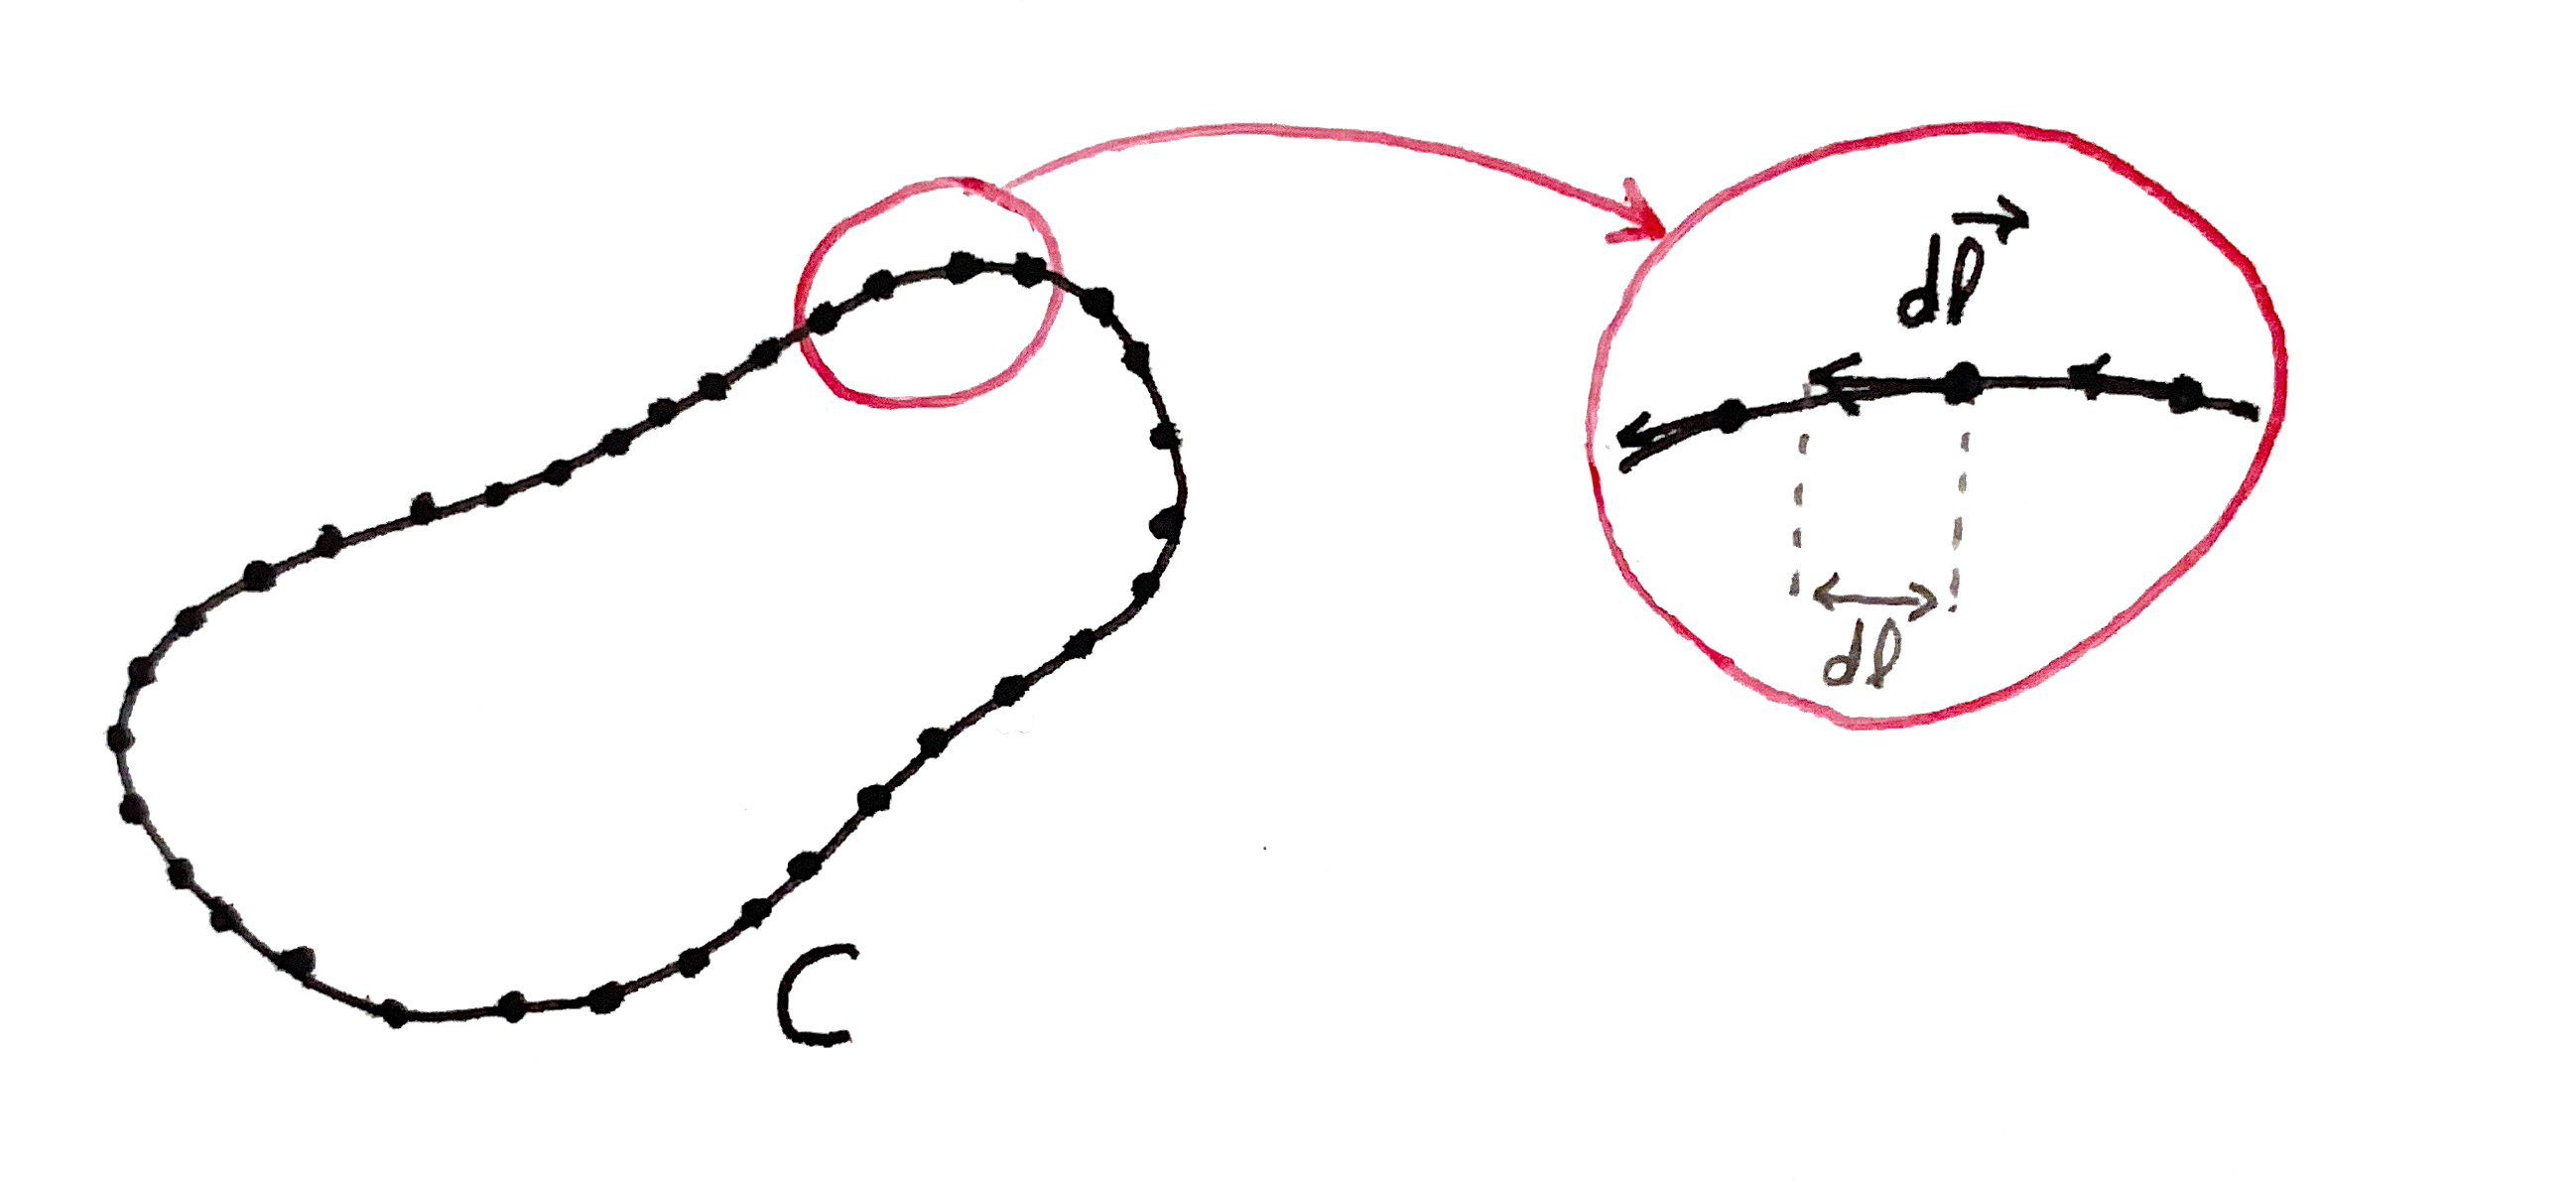 dl⃗
dl
C